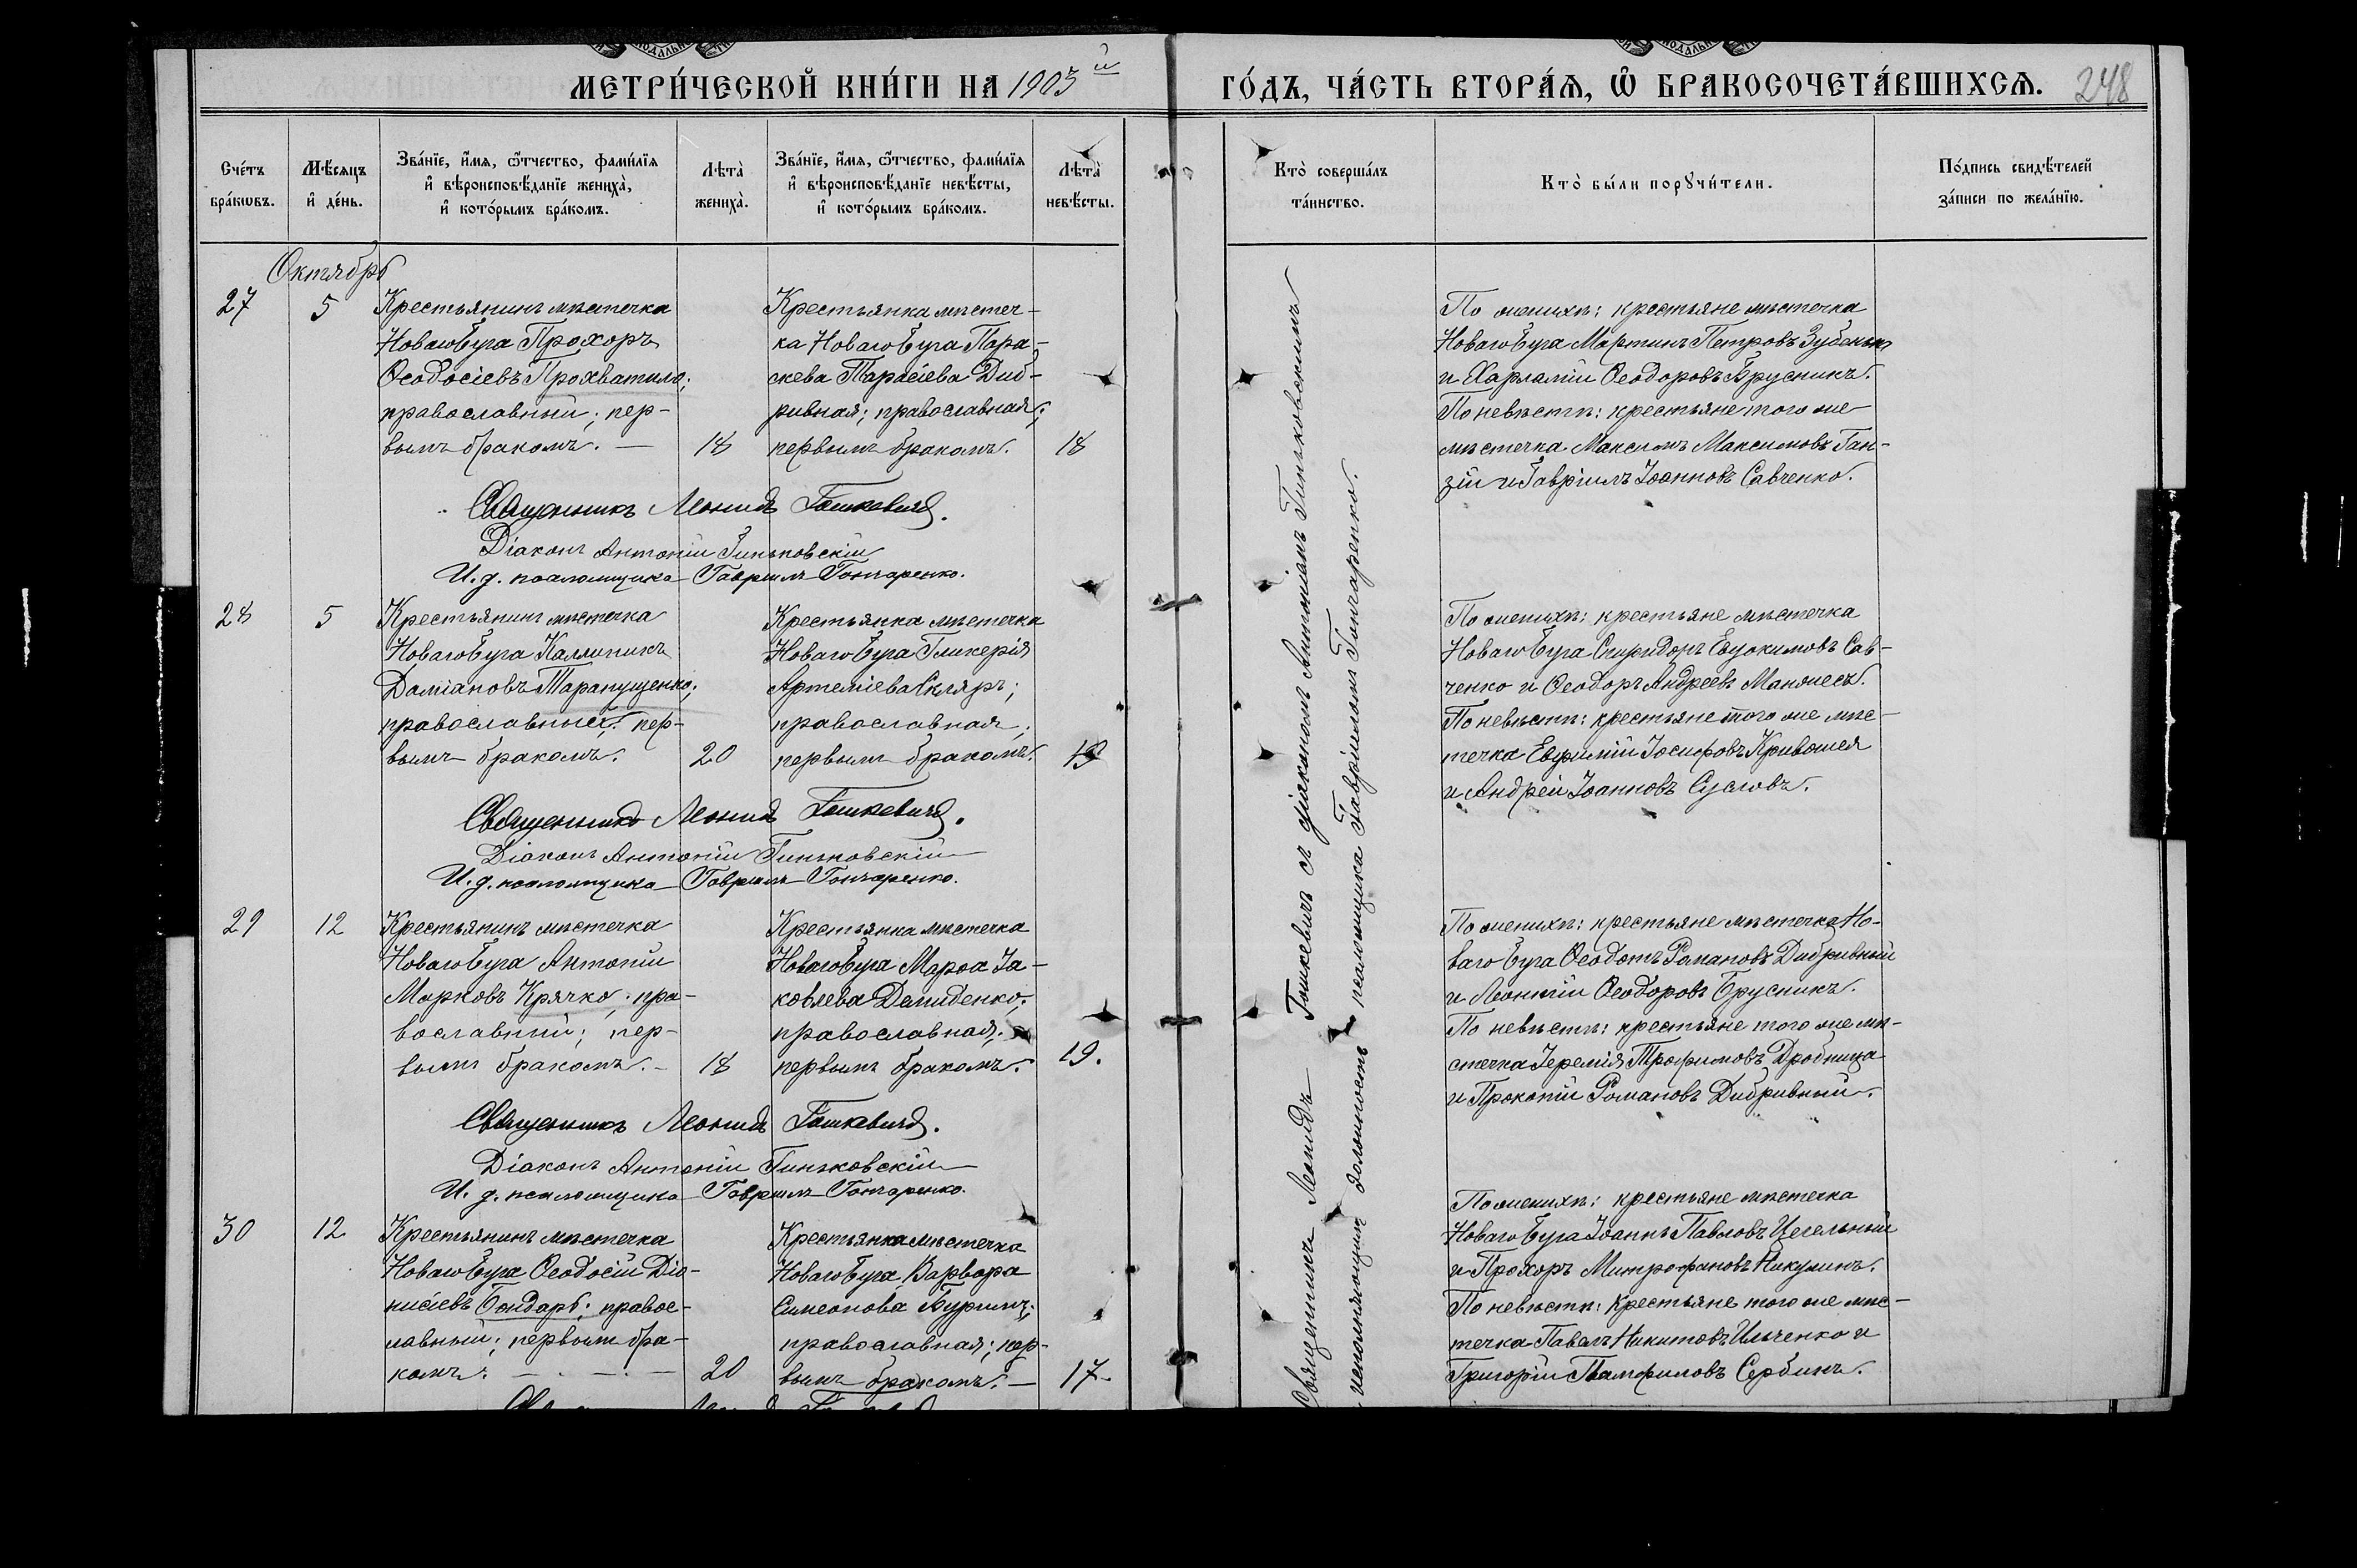 МЕТРИ́ЧЕСКОЙ КНИ́ГИ НА 1905й
ГО́ДЪ, ЧА́СТЬ ВТОРА́Ѧ, Ѽ БРАКОСОЧЕТА́ВШИХСѦ. 248
Сче́тъ бра́кѡвъ.
Мѣ́сяцъ и҆ де́нь.
Зва́нїе, и҆́мѧ, ѻ҆́тчество, фами́лїѧ
и҆ вѣроисповѣ́данїе жениха̀,
и҆ кото́рымъ бра́комъ.
Лѣта̀ жениха̀.
Зва́нїе, и҆́мѧ, ѻ҆́тчество, фами́лїѧ
и҆ вѣроисповѣ́данїе невѣ́сты,
и҆ кото́рымъ бра́комъ.
Лѣта̀ невѣ́сты.
Кто̀ соверша́лъ та́инство.
Кто̀ бы́ли порꙋчи́тели.
По́дпись свидѣ́телей за́писи по жела́нїю.
Октябрь
27
5
Крестьянинъ мѣстечка
Новаго Буга Прохоръ
Ѳеодосіевъ Прохватило;
православный; пер-
вымъ бракомъ. —
18
Крестьянка мѣстеч-
ка Новаго Буга Пара-
скева Тарасіева Диб-
ривная; православная;
первымъ бракомъ.
18
По женихѣ: крестьяне мѣстечка
Новаго Буга Мартинъ Петровъ Зубенко
и Харлампій Ѳеодоровъ Брусникъ.
По невѣстѣ: крестьяне того же
мѣстечка Максимъ Максимовъ Ган-
зій и Гавріилъ Іоанновъ Савченко.
Священникъ Леонидъ Гошкевичъ.
Діаконъ Антоній Гиньковскій
И. д. псаломщика Гавріилъ Гончаренко.
28
5
Крестьянинъ мѣстечка
Новаго Буга Каллиникъ
Даміановъ Таранущенко;
православный; пер-
вымъ бракомъ.
20
Крестьянка мѣстечка
Новаго Буга Гликерія
Артеміева Скляръ;
православная;
первымъ бракомъ.
19
По женихѣ: крестьяне мѣстечка
Новаго Буга Спиридонъ Евдокимовъ Сав-
ченко и Ѳеодоръ Андреевъ
По невѣстѣ: крестьяне того же мѣс-
течка Евфимій Іосифовъ Кривошея
и Андрей Іоанновъ Сусловъ.
Священникъ Леонидъ Гошкевичъ.
Діаконъ Антоній Гиньковскій
И. д. псаломщика Гавріилъ Гончаренко.
29
12
Крестьянинъ мѣстечка
Новаго Буга Антоній
Марковъ Крячко; пра-
вославный; пер-
вымъ бракомъ. —
18
Крестьянка мѣстечка
Новаго Буга Марѳа Іа-
ковлева Демиденко;
православная;
первымъ бракомъ.
19.
По женихѣ: крестьяне мѣстечка Но-
ваго Буга Ѳеодотъ Романовъ Дибривный
и Леонтій Ѳеодоровъ Брусникъ.
По невѣстѣ: крестьяне того же мѣ-
стечка Іеремія Трофимовъ Дробница
и Прокопій Романовъ Дибривный.
Священникъ Леонидъ Гошкевичъ.
Діаконъ Антоній Гиньковскій
И. д. псаломщика Гавріилъ Гончаренко.
30
12
Крестьянинъ мѣстечка
Новаго Буга Ѳеодосій Діо-
нисіевъ Бондарь; правос-
лавный; первымъ бра-
комъ. — . — . —
20
Крестьянка мѣстечка
Новаго Буга Варвара
Симеонова Буримъ;
православная; пер-
вымъ бракомъ. —
17
По женихѣ: крестьяне мѣстечка
Новаго Буга Іоаннъ Павловъ Цегельный
и Прохоръ Митрофановъ Никулинъ.
По невѣстѣ: крестьяне того же мѣс-
течка Павелъ Никитовъ Ильченко и
Григорій Памфиловъ Сербинъ.
Священникъ Леонидъ Гошкевичъ съ діакономъ Антоніемъ Гиньковскимъ
и исполняющимъ должность псаломщика Гавріиломъ Гончаренко.